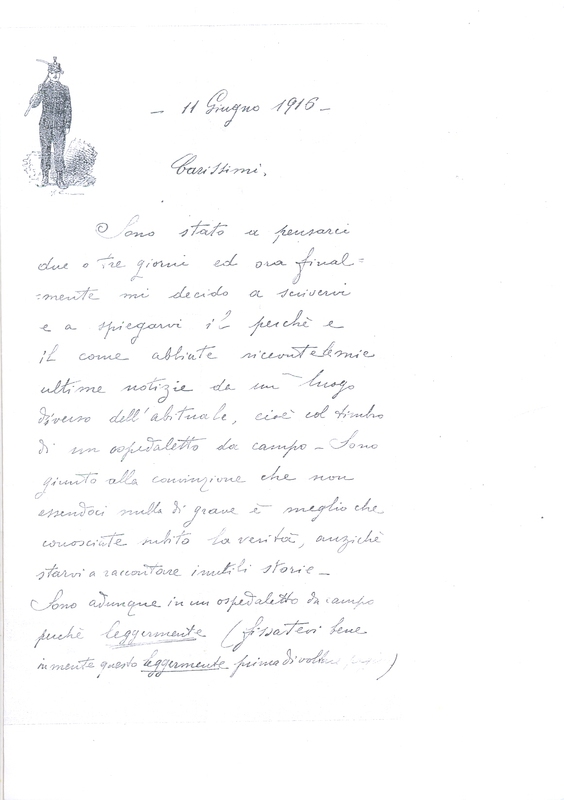 - 11 Giugno 1916 -
Carissimi.
Sono stato a pensarci
due o tre giorni ed ora final=
=mente mi decido a scrivervi
e a spiegarvi il perchè e
il come abbiate ricevute le mie
ultime notizie da un luogo
diverso dell'abituale, cioè col timbro
di un ospedaletto da campo - Sono
giunto alla convinzione che non
essendoci nulla di grave è meglio che
conosciate subito la verità, anzichè
starvi a raccontare inutili storie -
Sono adunque in un ospedaletto da campo
perchè leggermente (fissatevi bene
in mente questo leggermente prima di voltare )